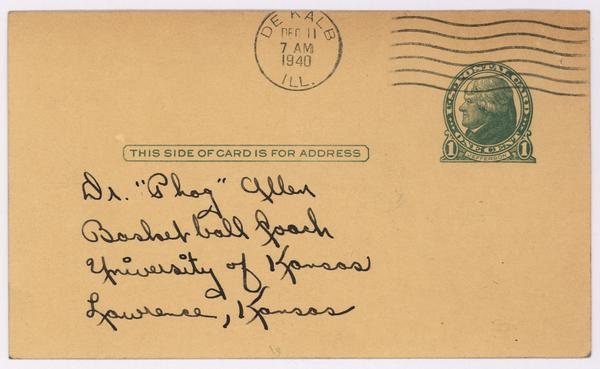 DE KALB
DEC 11
7 AM
1940
ILL.
U.S. POSTAL CARD
ONE CENT
1 JEFFERSON 1
THIS SIDE OF CARD IS FOR ADDRESS
Dr. "Phog" Allen
Basket ball Coach
University of Kansas
Lawrence, Kansas